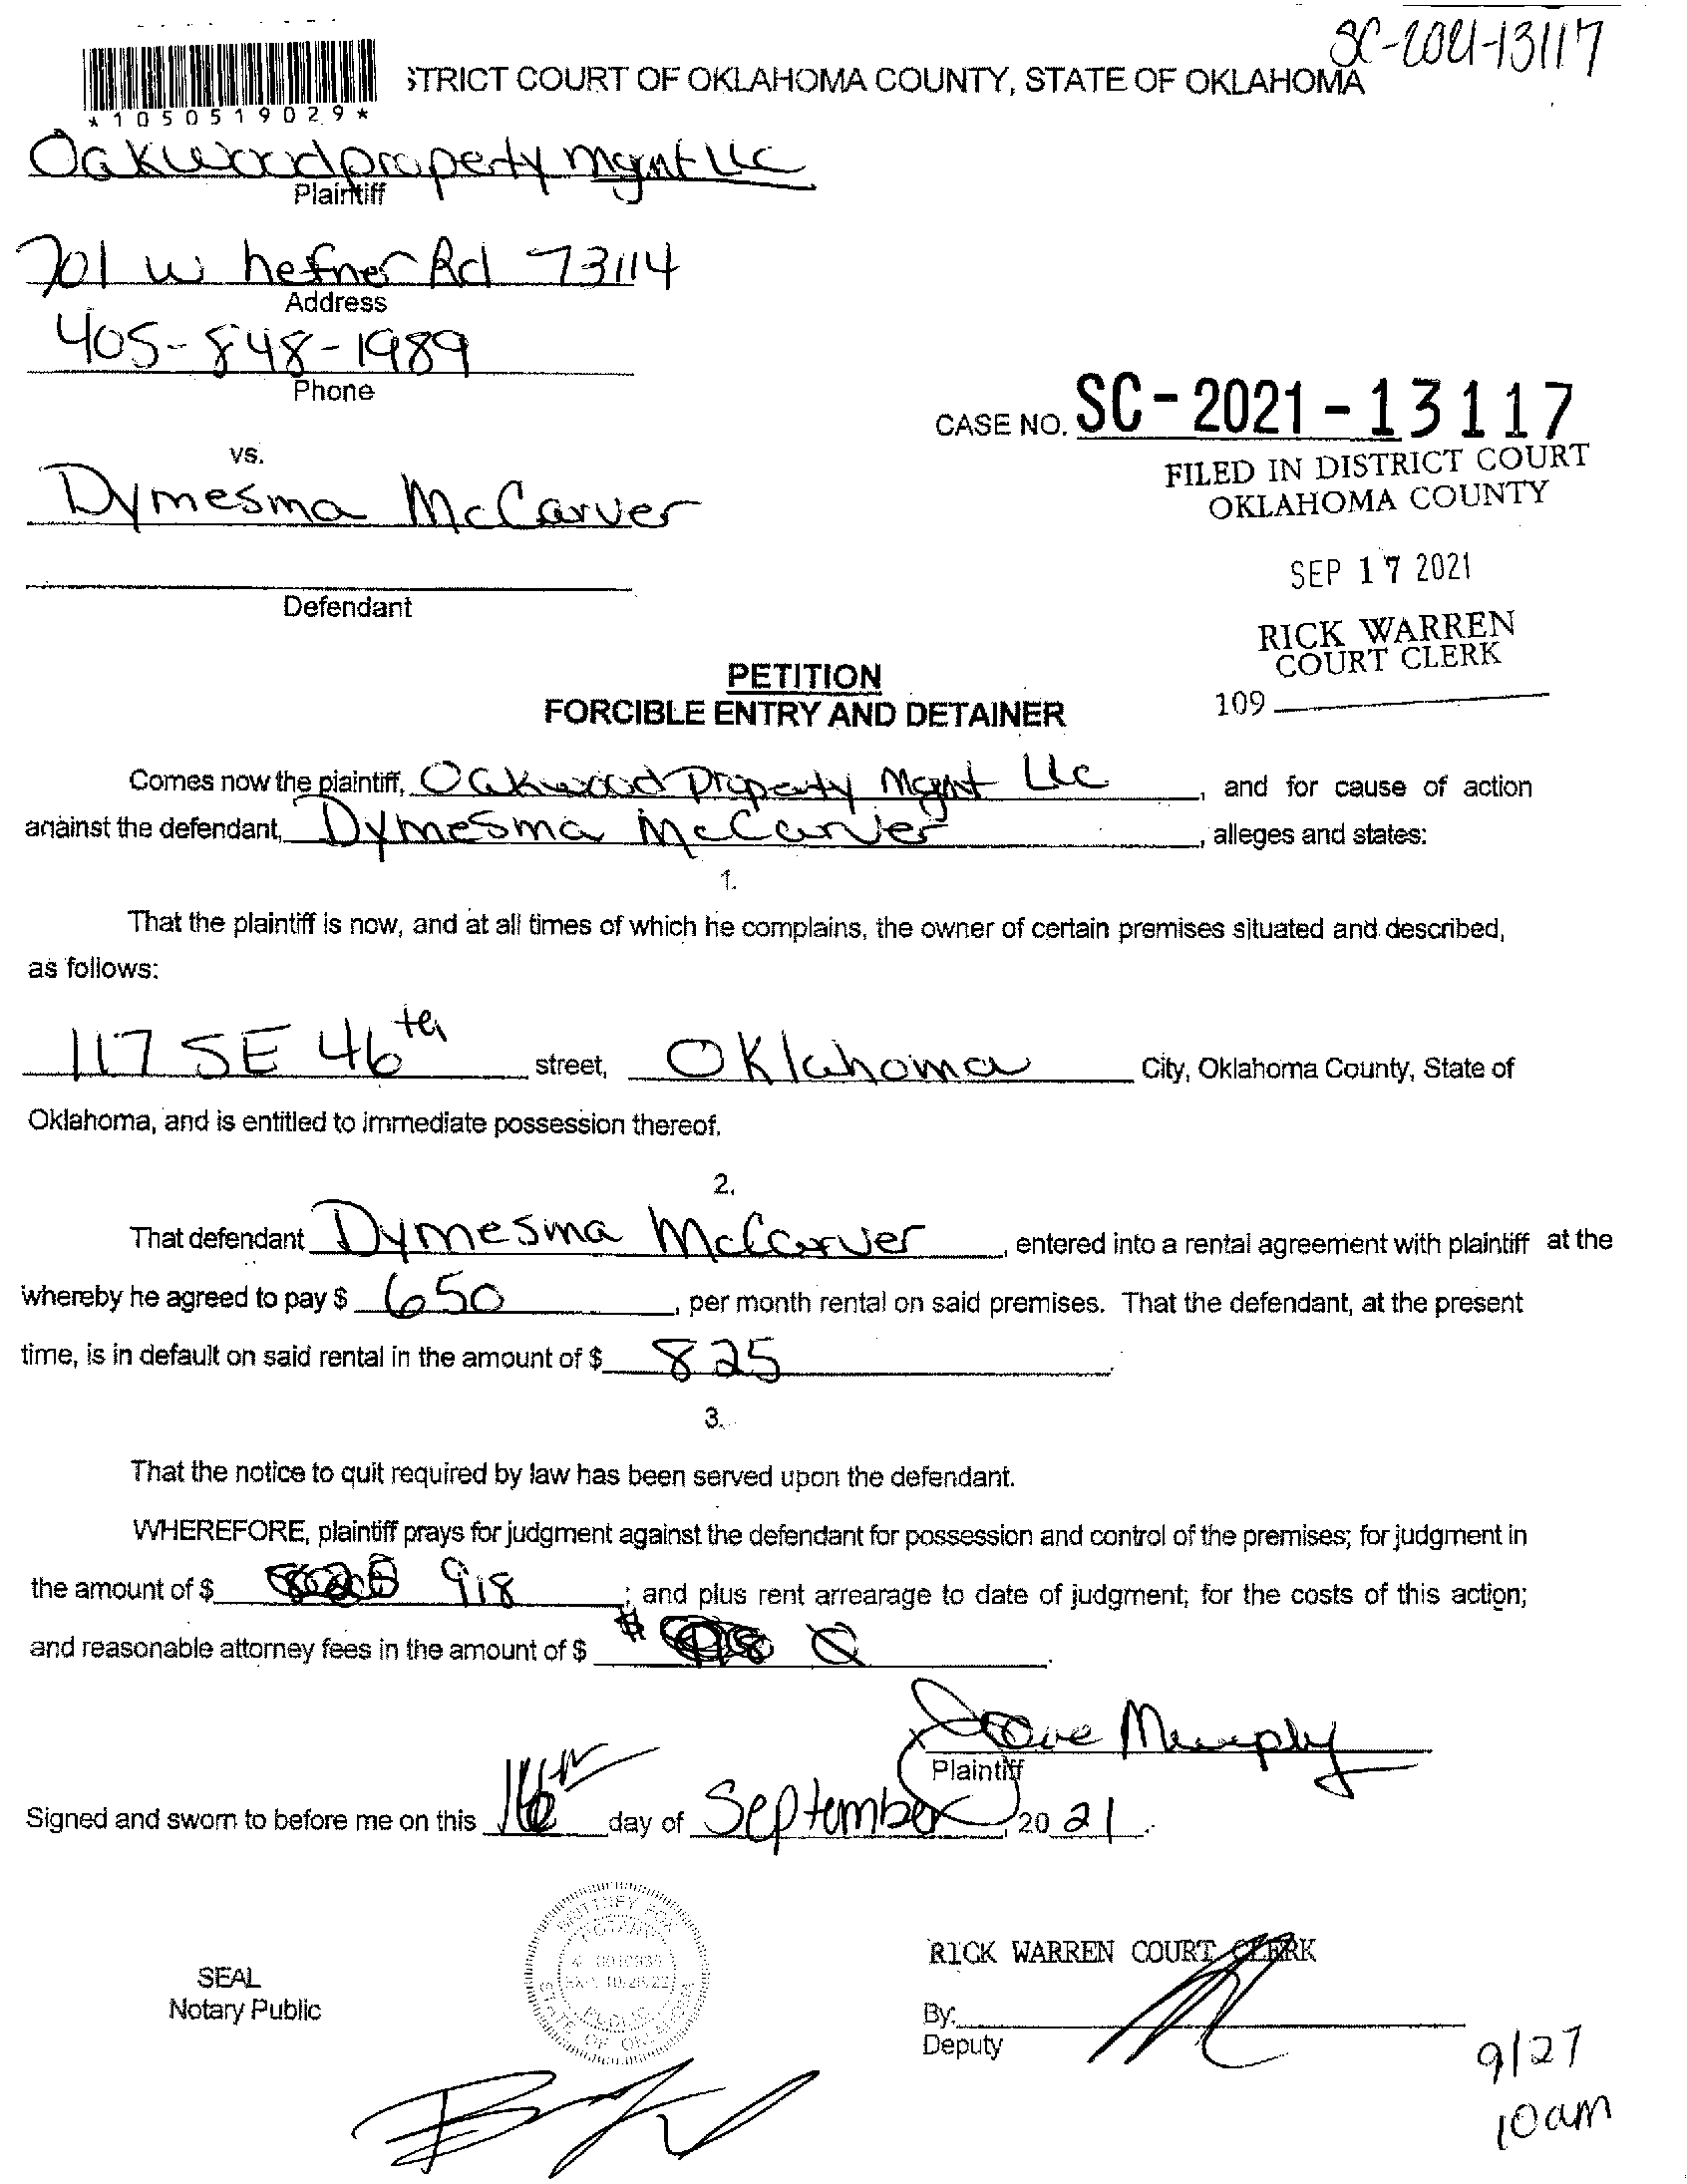 SC-2021-13117
STRICT COURT OF OKLAHOMA COUNTY, STATE OF OKLAHOMA
*1050519029*
Oakwood property mgmt LLC
Plaintiff
701 W hefner Rd 73114
Address
405-848-1989
Phone
CASE NO. SC-2021-13117
vs.
FILED IN DISTRICT COURT
OKLAHOMA COUNTY
Dymesma McCarver
SEP 17 2021
Defendant
RICK WARREN
COURT CLERK
109
PETITION
FORCIBLE ENTRY AND DETAINER
Comes now the plaintiff, Oakwood Property Mgmt LLC, and for cause of action
against the defendant, Dymesma McCarver, alleges and states:
1.
That the plaintiff is now, and at all times of which he complains, the owner of certain premises situated and described,
as follows:
117 SE 46th street, Oklahoma City, Oklahoma County, State of
Oklahoma, and is entitled to immediate possession thereof.
2.
That defendant Dymesma McCarver, entered into a rental agreement with plaintiff at the
whereby he agreed to pay $ 650, per month rental on said premises. That the defendant, at the present
time, is in default on said rental in the amount of $ 825.
3.
That the notice to quit required by law has been served upon the defendant.
WHEREFORE, plaintiff prays for judgment against the defendant for possession and control of the premises; for judgment in
the amount of $ 918; and plus rent arrearage to date of judgment; for the costs of this action;
and reasonable attorney fees in the amount of $
Murphy
Plaintiff
Signed and sworn to before me on this 16th day of September, 2021.
BRITTNEY FOX
NOTARY
PUBLIC
STATE OF OKLAHOMA
SEAL
Notary Public
RICK WARREN COURT CLERK
By:
Deputy
9/27
10am